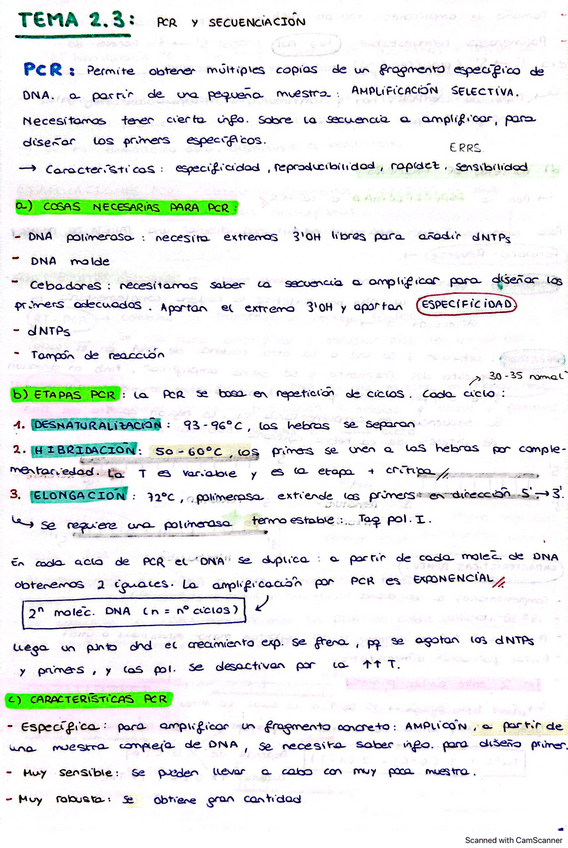 TEMA 2.3: PCR Y SECUENCIACIÓN
PCR: Permite obtener múltiples copias de un fragmento específico de
DNA. a partir de una pequeña muestra: AMPLIFICACIÓN SELECTIVA.
Necesitamos tener cierta info. sobre la secuencia a amplificar, para
diseñar los primers específicos.
ERRS
→ Características: especificidad, reproducibilidad, rapidez, sensibilidad
a) COSAS NECESARIAS PARA PCR:
- DNA polimerasa: necesita extremos 3'OH libres para añadir dNTPs
- DNA molde
- Cebadores: necesitamos saber la secuencia a amplificar para diseñar los
primers adecuados. Aportan el extremo 3'OH y aportan ESPECIFICIDAD
- dNTPs
- Tampón de reacción
30-35 normal
b) ETAPAS PCR: La PCR se basa en repetición de ciclos. Cada ciclo:
1. DESNATURALIZACIÓN: 93-96ºC, las hebras se separan
2. HIBRIDACIÓN: 50-60ºC, los primers se unen a las hebras por comple-
mentariedad. La T es variable y es la etapa + crítica
3. ELONGACIÓN: 72ºC, polimerasa extiende los primers en dirección 5'→3'.
↳ Se requiere una polimerasa termoestable: Taq pol. I.
En cada ciclo de PCR el DNA se duplica: a partir de cada moléc. de DNA
obtenemos 2 iguales. La amplificación por PCR es EXPONENCIAL
2ⁿ moléc. DNA (n = nº ciclos)
Llega un punto dnd el crecimiento exp. se frena, pq se agotan los dNTPs
y primers, y las pol. se desactivan por la ↑↑ T.
c) CARACTERÍSTICAS PCR
- Específica: para amplificar un fragmento concreto: AMPLICÓN, a partir de
una muestra compleja de DNA, se necesita saber info. para diseño primer.
- Muy sensible: se pueden llevar a cabo con muy poca muestra.
- Muy robusta: se obtiene gran cantidad
Scanned with CamScanner